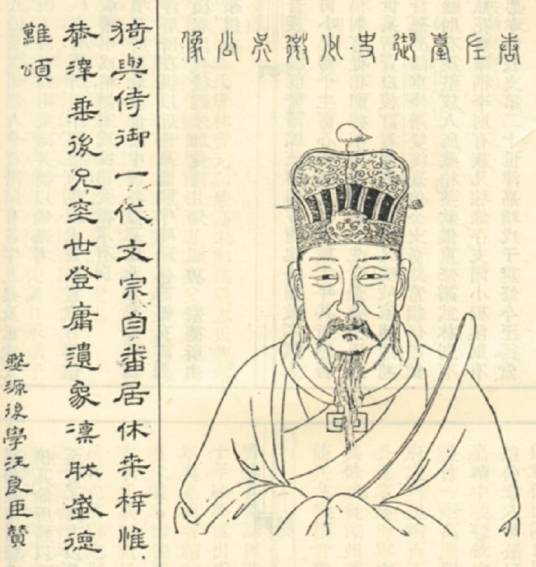 唐左臺御史少微吳公像
猗與侍御一代文宗自番居休桑梓惟
恭澤垂後昆奕世登庸遺象凜耿盛德
難頌
婺源後學汪良臣贊